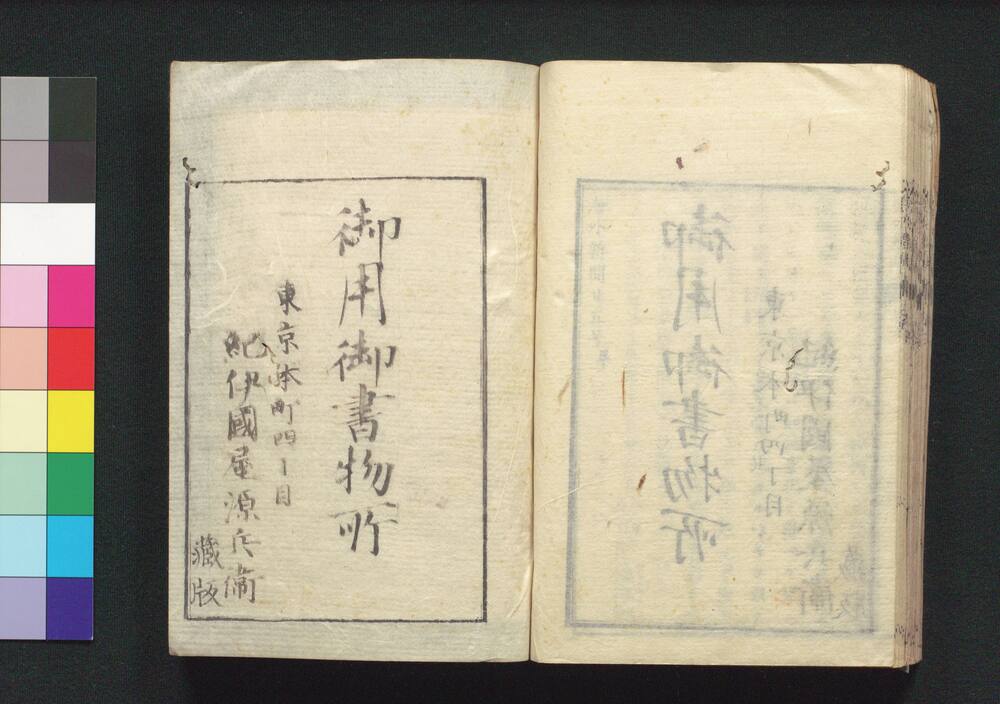 御用御書物所
東京本町四丁目
紀伊國屋源兵衛
藏版